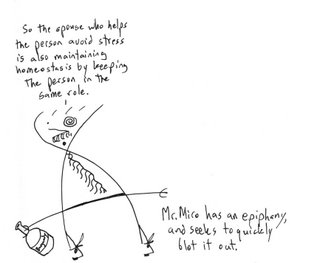 So the spouse who helps
the person avoid stress
is also maintaining
homeostasis by keeping
the person in the
same role.
Mr. Miro has an epiphany,
and seeks to quickly
blot it out.